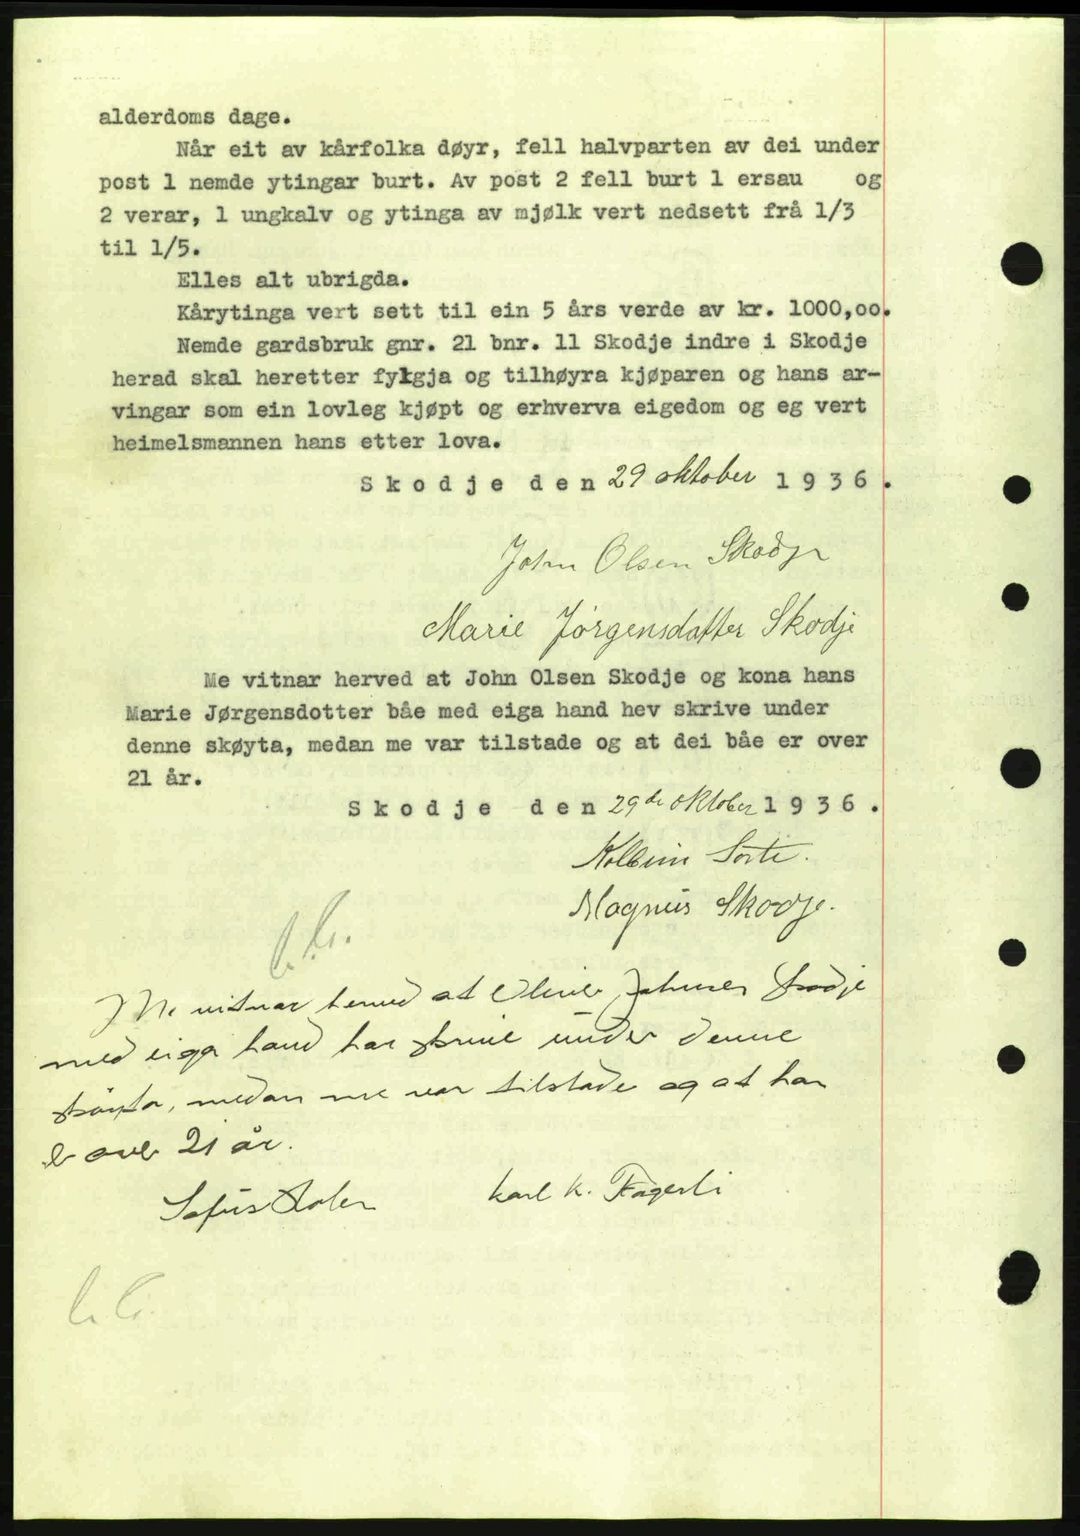 alderdoms dage.
Når eit av kårfolka døyr, fell halvparten av dei under
post 1 nemde ytingar burt. Av post 2 fell burt 1 ersau og
2 verar, 1 ungkalv og ytinga av mjølk vert nedsett frå 1/3
til 1/5.
Elles alt ubrigda.
Kårytinga vert sett til ein 5 års verde av kr. 1000,oo.
Nemde gardsbruk gnr. 21 bnr. 11 Skodje indre i Skodje
herad skal heretter fylgja og tilhøyra kjøparen og hans ar-
vingar som ein lovleg kjøpt og erhverva eigedom og eg vert
heimelsmannen hans etter lova.
Skodje den 29 oktober 1936.
John Olsen Skodje
Marie Jørgensdatter Skodje
Me vitnar herved at John Olsen Skodje og kona hans
Marie Jørgensdotter båe med eiga hand hev skrive under
denne skøyta, medan me var tilstade og at dei båe er over
21 år.
Skodje den 29de oktober 1936.
Kolbein Sorte.
Magnus Skodje.
Me vitnar herved at Johnsen Skodje
med eiga hand har skrive under denne
skøyta, medan me var tilstade og at han
er over 21 år.
Karl K. Fagerli